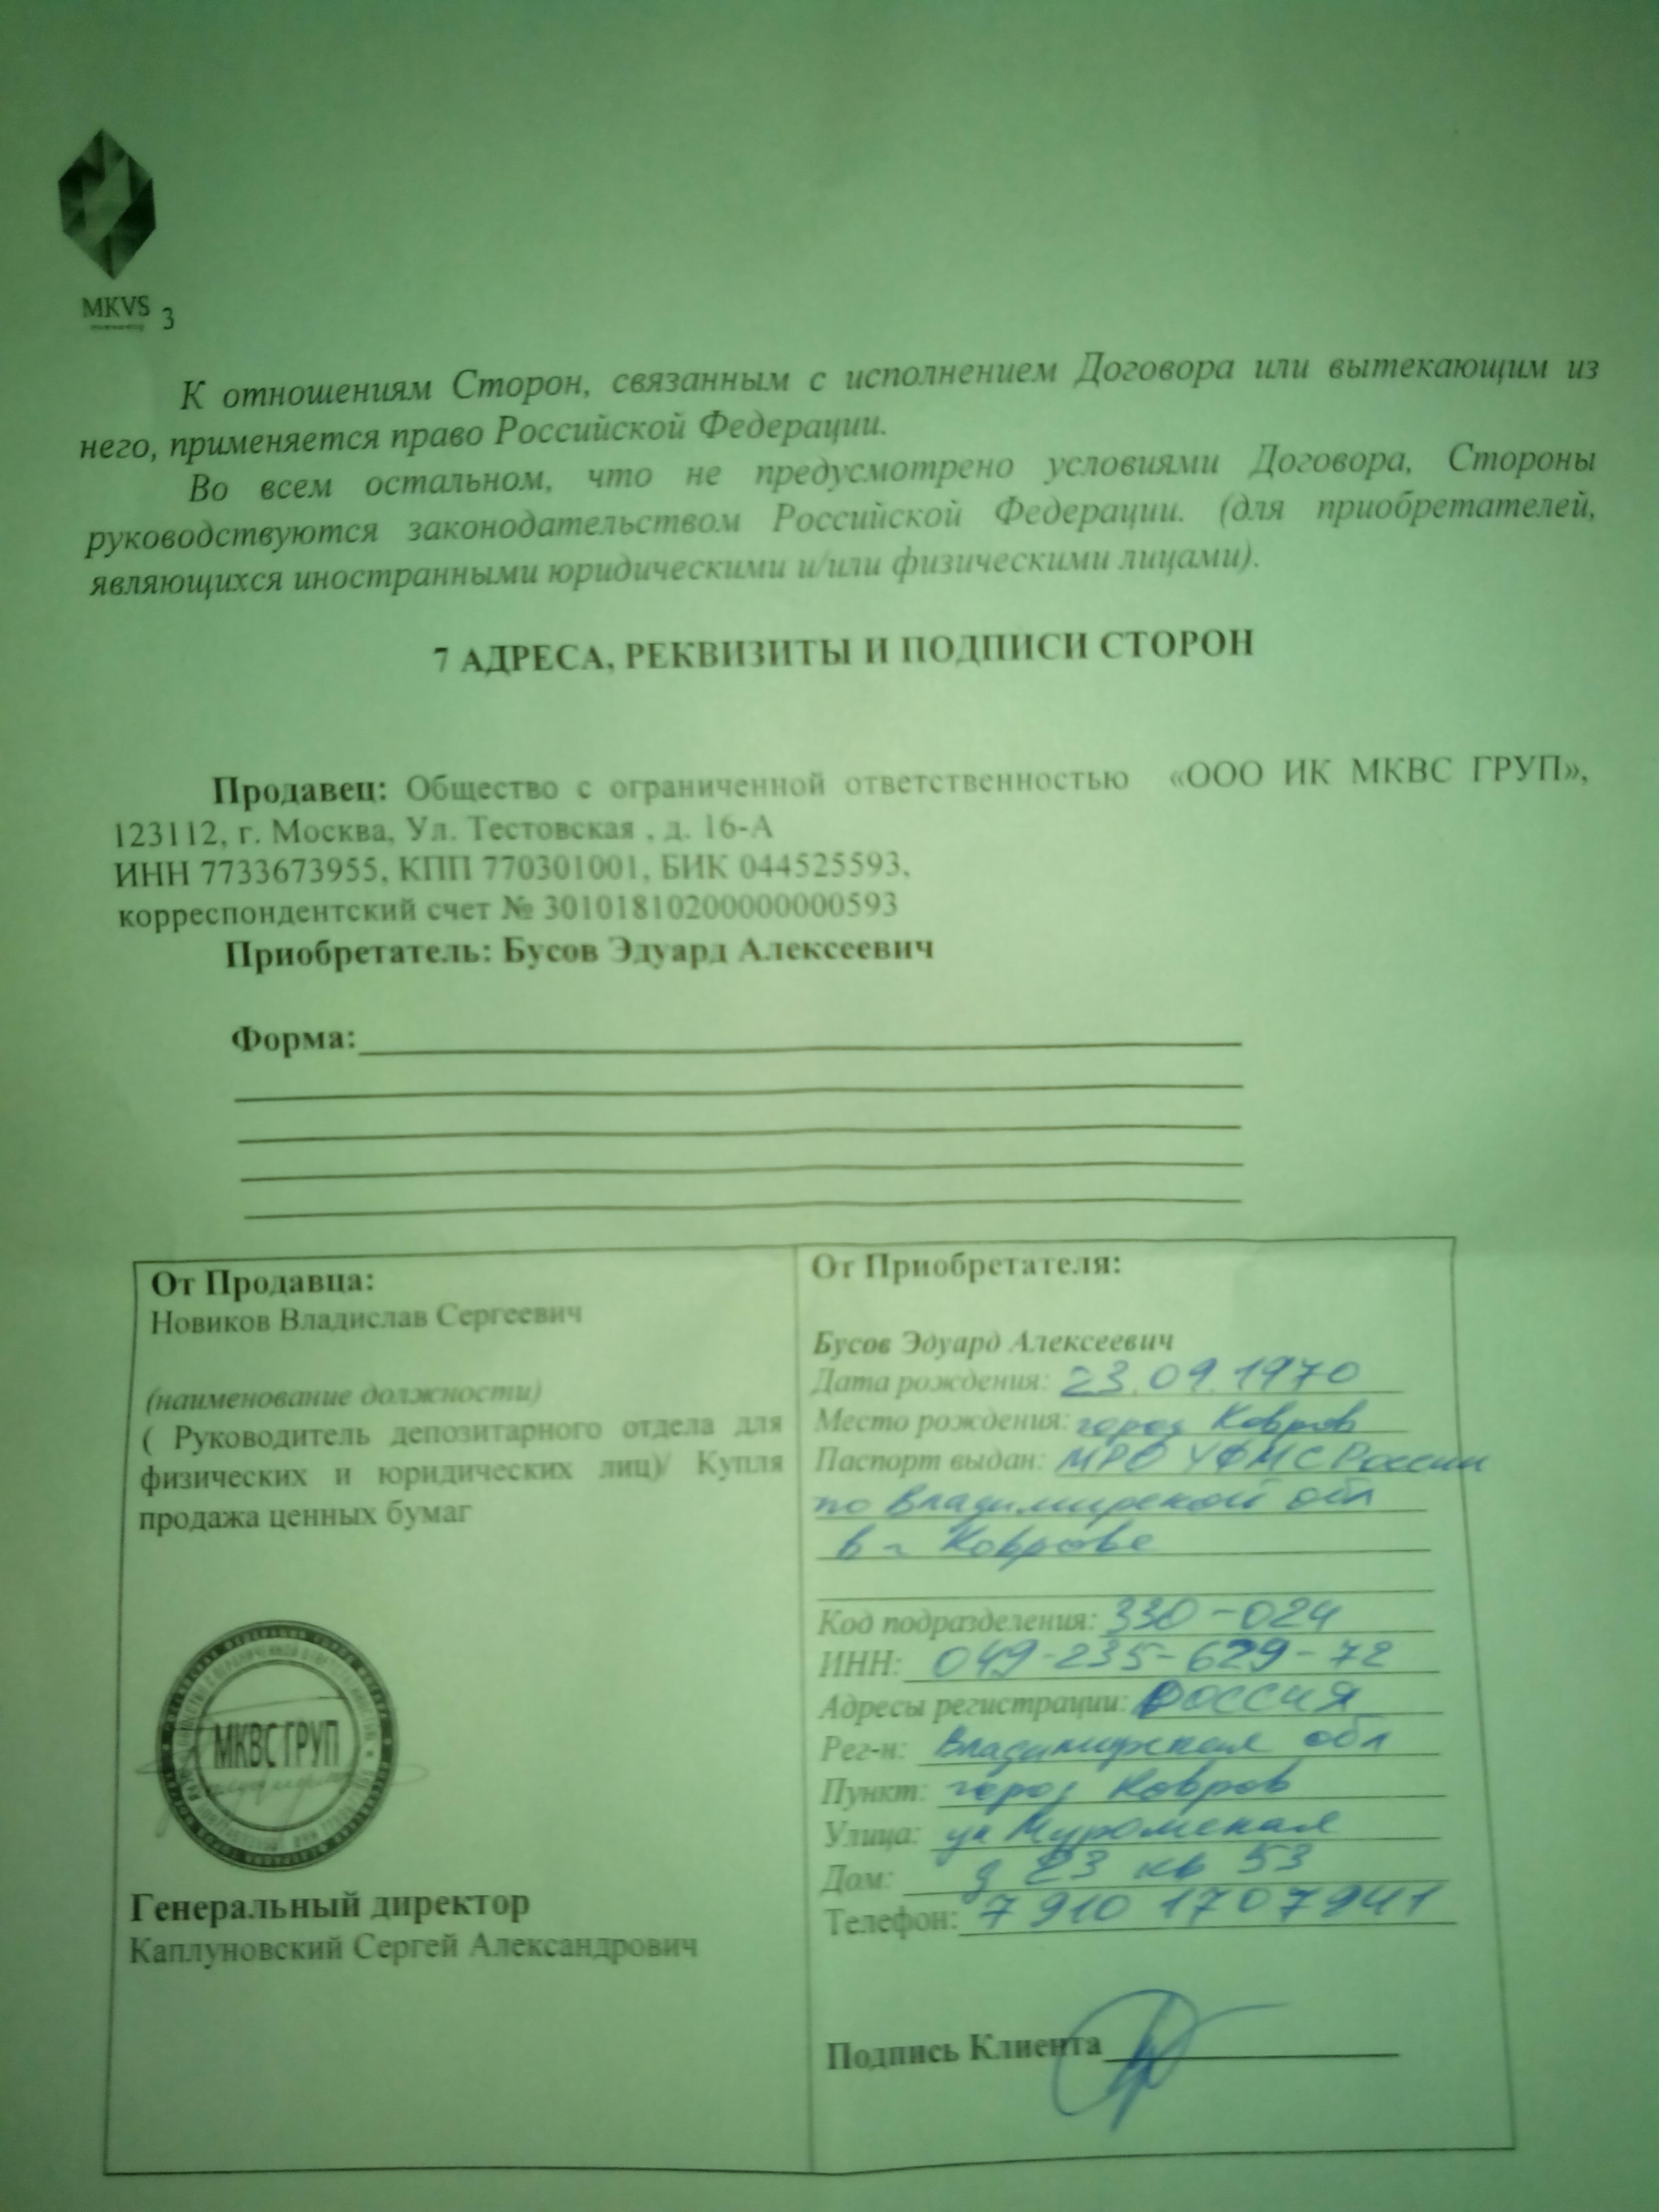 MKVS 3
К отношениям Сторон, связанным с исполнением Договора или вытекающим из
него, применяется право Российской Федерации.
Во всем остальном, что не предусмотрено условиями Договора, Стороны
руководствуются законодательством Российской Федерации. (для приобретателей,
являющихся иностранными юридическими и/или физическими лицами).
7 АДРЕСА, РЕКВИЗИТЫ И ПОДПИСИ СТОРОН
Продавец: Общество с ограниченной ответственностью «ООО ИК МКВС ГРУП»,
123112, г. Москва, Ул. Тестовская , д. 16-А
ИНН 7733673955, КПП 770301001, БИК 044525593,
корреспондентский счет № 30101810200000000593
Приобретатель: Бусов Эдуард Алексеевич
Форма:
От Продавца:
Новиков Владислав Сергеевич
(наименование должности)
( Руководитель депозитарного отдела для
физических и юридических лиц)/ Купля
продажа ценных бумаг
МКВС ГРУП
Генеральный директор
Каплуновский Сергей Александрович
От Приобретателя:
Бусов Эдуард Алексеевич
Дата рождения: 23.09.1970
Место рождения: город Ковров
Паспорт выдан: МРО УФМС России
по Владимирской обл
в г Коврове
Код подразделения: 330-024
ИНН: 049-235-629-72
Адресы регистрации: РОССИЯ
Рег-н: Владимирская обл
Пункт: город Ковров
Улица: ул Муромская
Дом: д 23 кв 53
Телефон: 7 910 1707941
Подпись Клиента